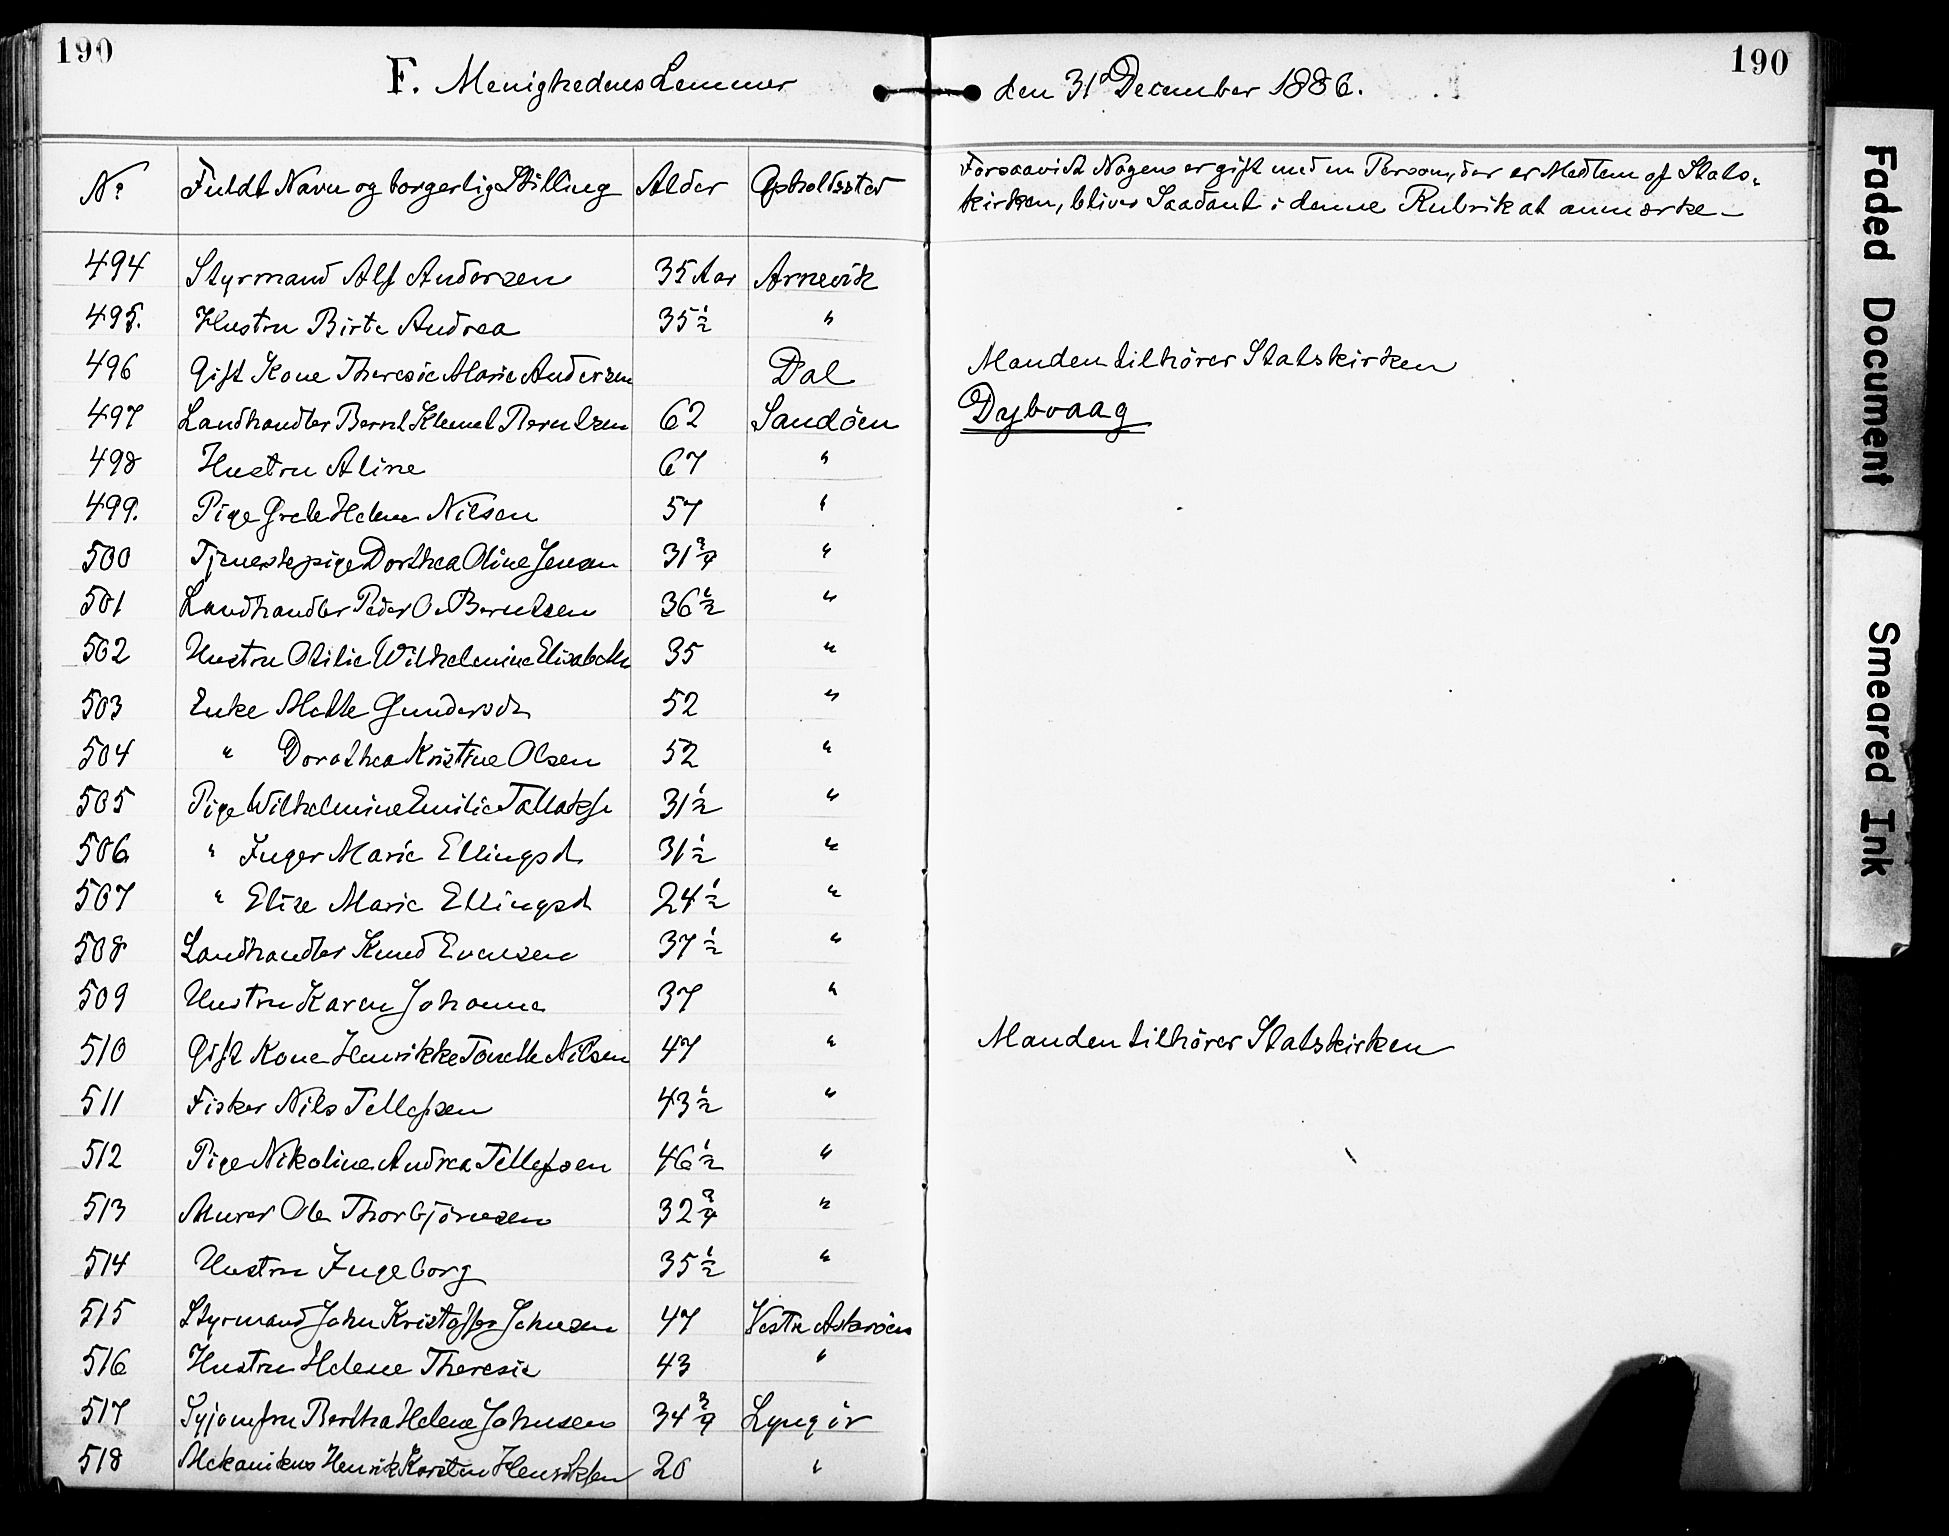 190
190
F. Menighedens Lemmer den 31te December 1886.
No Fuldt Navn og borgerlig Stilling Alder Opholdssted Forsaavidt Nogen er gift med en Person, der er Medlem af Stats-
kirken, bliver Saadant i denne Rubrik at anmærke -
494 Styrmand Alf Andersen 35 Aar Arnevik
495. Hustru Birte Andrea 35 1/2 "
496 Gift Kone Theresie Marie Andersen Dal Manden tilhörer Statskirken
497 Landhandler Bernt Klemet Berntsen 62 Sandöen Dybvaag
498 Hustru Aline 67 "
499. Pige Grete Helene Nilsen 57 "
500 Tjenestepige Dorthea Oline Jensen 31 3/4 "
501 Landhandler Peder O. Berntsen 36 1/2 "
502 Hustru Otilie Wilhelmine Elisabeth 35 "
503 Enke Mette Gundersdt 52 "
504 " Dorothea Kristine Olsen 52 "
505 Pige Wilhelmine Emilie Tallaksn 31 1/2 "
506 " Inger Marie Ellingsd 31 1/2 "
507 " Elise Marie Ellingsd 24 1/2 "
508 Landhandler Knud Evensen 37 1/2 "
509 Hustru Karen Johanne 37 "
510 Gift Kone Henrikke Tonette Nilsen 47 " Manden tilhörer Statskirken
511 Fisker Nils Tellefsen 43 1/2 "
512 Pige Nikoline Andrea Tellefsen 46 1/2 "
513 Murer Ole Thorbjörnsen 32 3/4 "
514 Hustru Ingeborg 35 1/2 "
515 Styrmand John Kristoffer Johnsen 47 Vestre Askeröen
516 Hustru Helene Theresie 43 "
517 Syjomfru Berthea Helene Johnsen 34 3/4 Lyngör
518 Mekanikus Henrik Karsten Henriksen 20 "
Faded Document
Smeared Ink